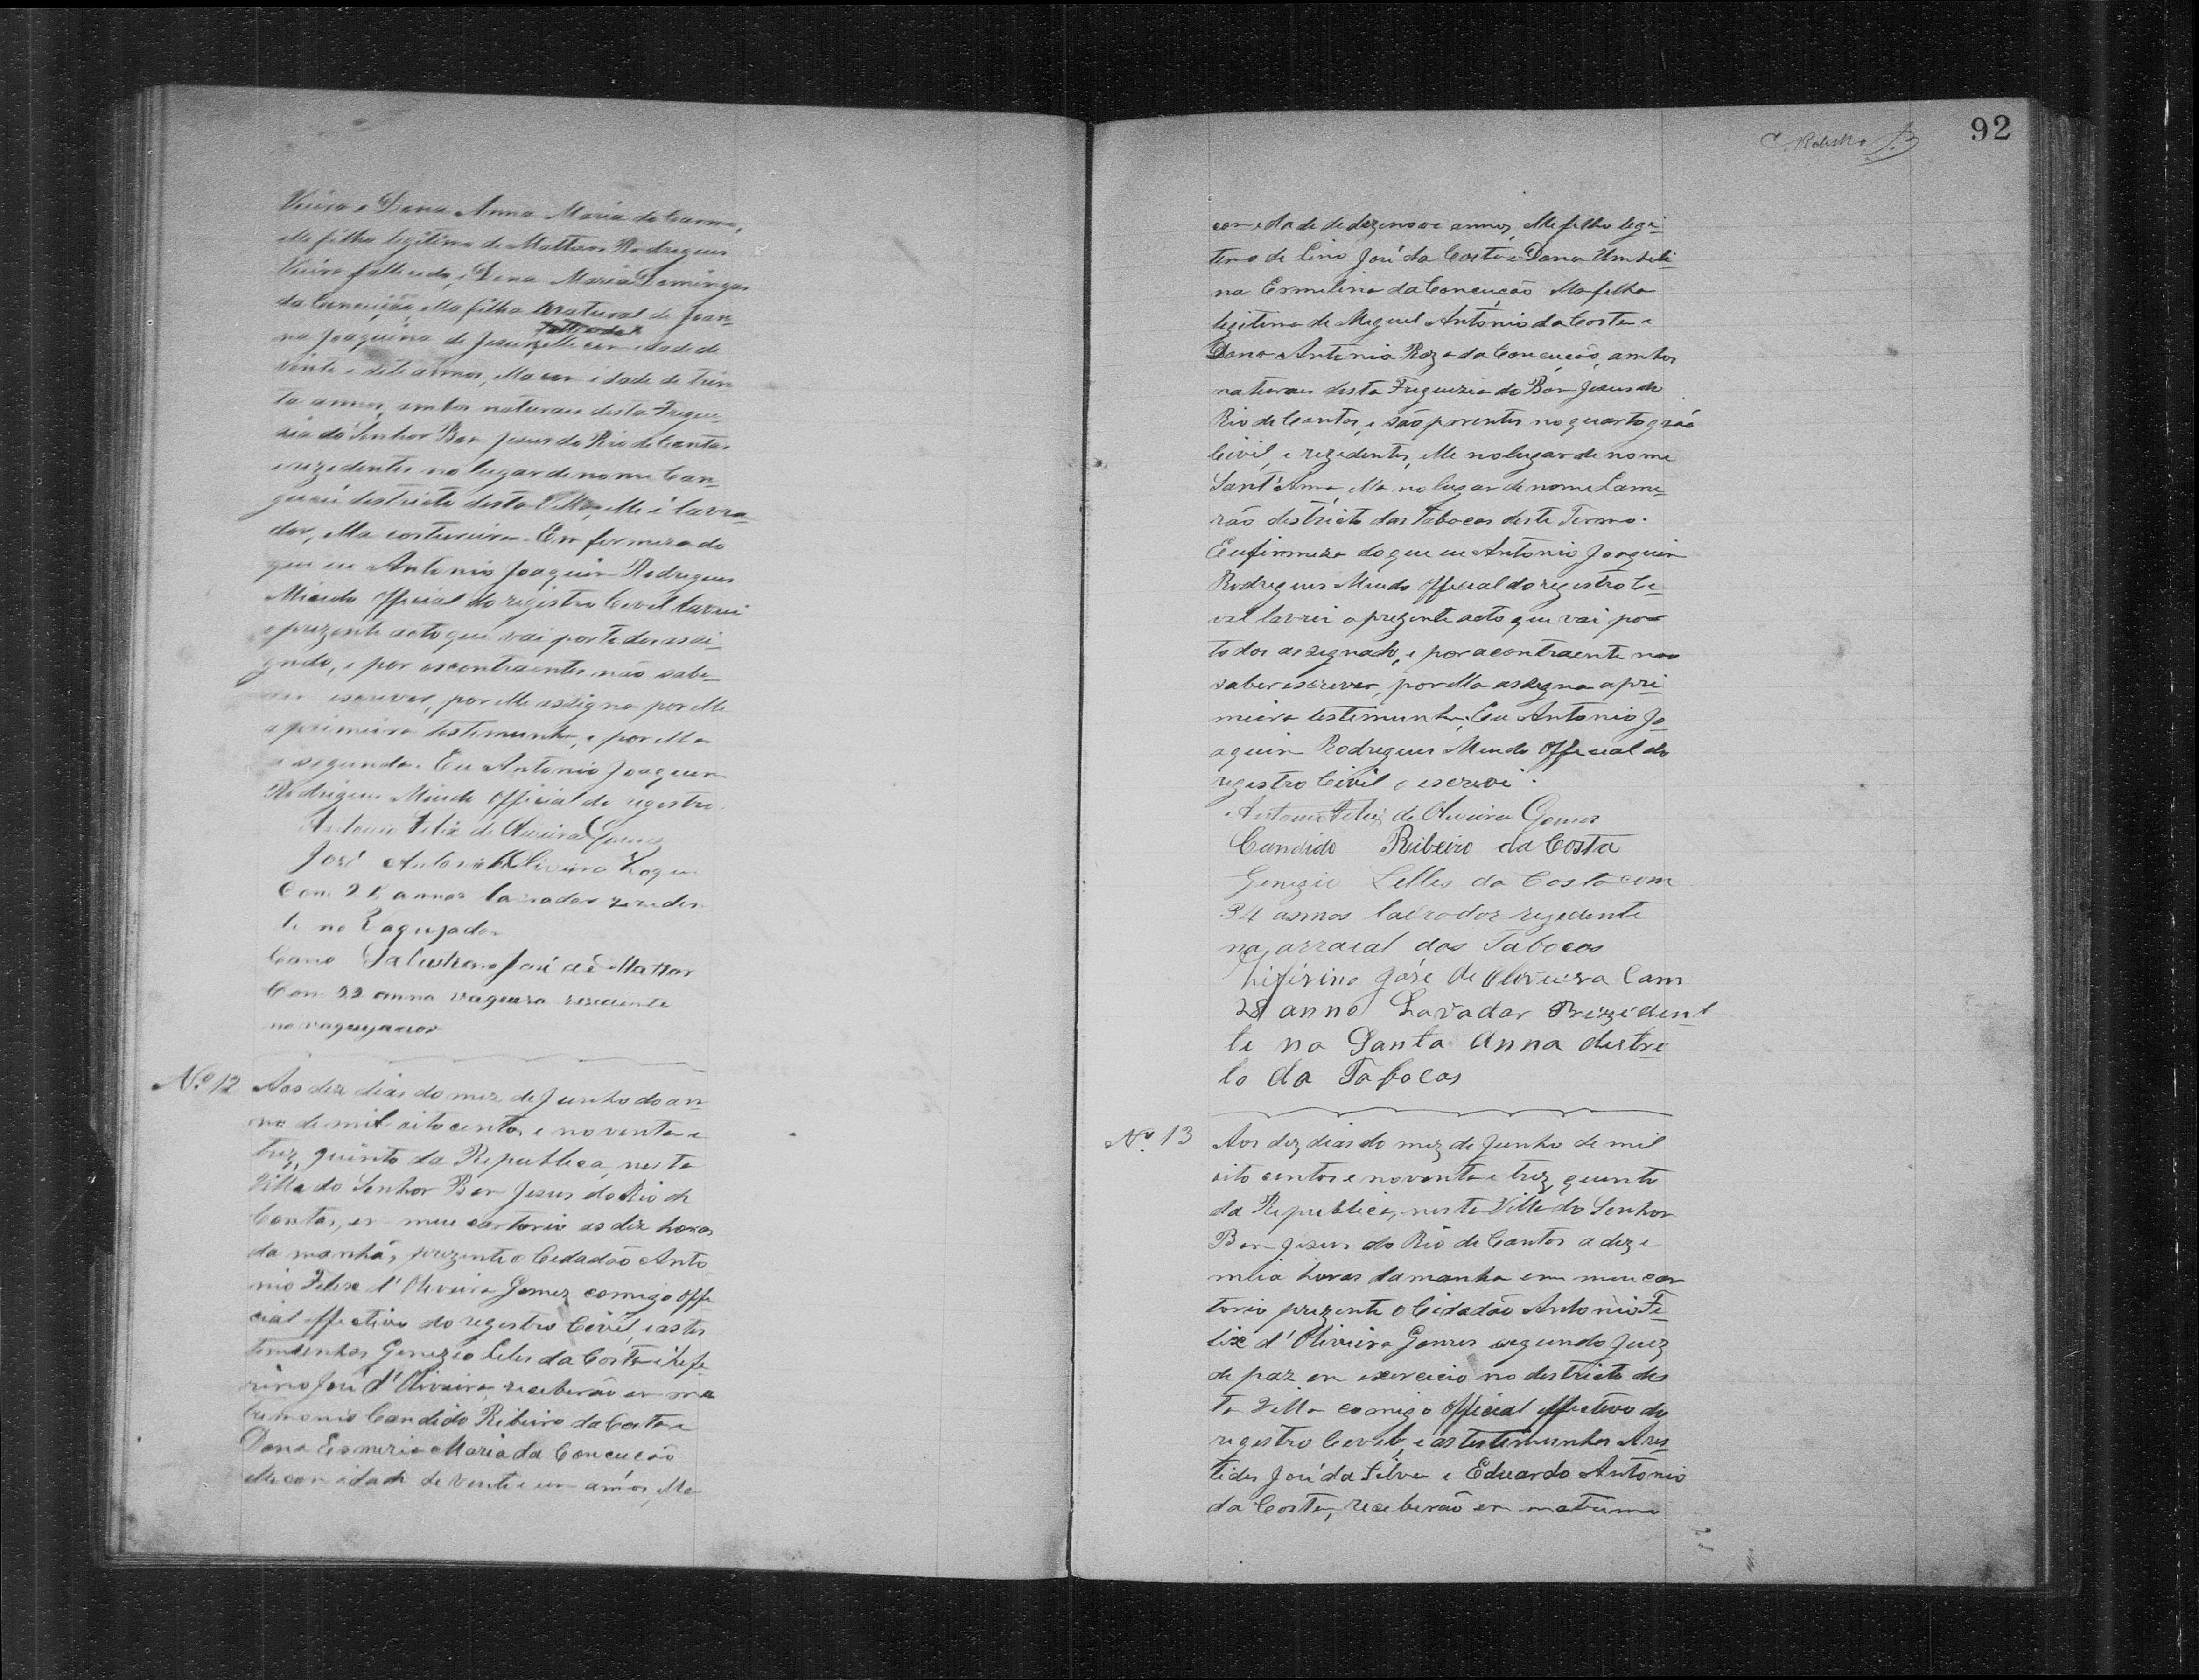 Vieira e Dona Anna Maria do Carmo,
elle filho legitimo de Matheos Rodrigues
Vieira fallecido, e Dona Maria Domingas
da Conceição, ella filha natural de Joan-
na Joaquina de Jesus, fallecida elle com idade de
vinte e sete annos, ella com idade de trin
ta annos, ambos naturaes desta Fregue
sia do Senhor Bom Jesus do Rio de Contas
e rezedentes no lugar de nome Can-
destricto desta Villa, elle é lavra-
dor, ella costureira. Em firmeza do
que eu Antonio Joaquim Rodrigues
Miudo Official do registro Civil lavrei
o prezente acto que vai por todos assi-
gnado, e por os contraentes não sabe-
rem escrever, por elle assigna por elle
a primeira testemunha, e por ella
a segunda. Eu Antonio Joaquim
Rodrigues Miudo Official do registro
Antonio Felix de Oliveira Gomes
José Antonio Oliveira
Com annos lavrador rezeden
te no
José de Mattos
Com 22 anno vaqueiro rezedente
no
Nº 12 Aos dez dias do mez de Junho do an-
no de mil oitocentos e noventa e
trez, quinto da Republica, nesta
Villa do Senhor Bom Jesus do Rio de
Contas, em meu cartorio as dez horas
da manhã, prezente o Cidadão Anto
nio Felix d'Oliveira Gomez comigo offi
cial effectivo do registro Civil, e as tes
temunhas Genezio Leles da Costa e Zefe
rino José d'Oliveira receberão em ma
trimonio Candido Ribeiro da Costa e
Dona Esmeria Maria da Conceicão
elle com idade de vente e um annos, ella
92
com idade de dezenove annos, elle filho legi-
temo de Lino José da Costa e Dona Umbeli-
na Ermelina da Conceicão ella filha
legitima de Miguel Antonio da Costa e
Dona Antonia Roza da Conceicão, ambos
naturaes desta Freguezia do Bom Jesus do
Rio de Contas, e são parentes no quarto gráo
Civil, e rezedentes, elle no lugar de nome
Sant'Anna, ella no lugar de nome Lamei-
rão destricto das Tabocas deste Termo.
E em firmeza do que eu Antonio Joaquim
Rodregues Miudo Official do registro Ce-
vil lavrei o prezente acto que vai por
todos assegnado, e por a contraente nao
saber escrever, por ella assegna a pri-
meira testemunha. Eu Antonio Jo-
aquim Rodregues Miudo Official do
registro Civil o escrevi.
Antonio Felix de Oliveira Gomes
Candido Ribeiro da Costa
Genezio Lelles da Costa com
34 annos lavrador rezedente
no arraial das Tabocas
Zifirino José de Oliveira Cam
28 anno Lavador Rezident
te na Santa Anna destre
to da Tabocas
Nº 13 Aos dez dias do mez de Junho de mil
oito centos e noventa e trez, quinto
da Republica, nesta Villa do Senhor
Bom Jesus do Rio de Contas a dez e
meia horas da manha em meu car
torio prezente o Cidadão Antonio Fe-
lix d'Oliveira Gomes segundo Juez
de paz em exercicio no destricto des
ta Villa comigo official effectivo do
registro Cevil, e as testemunhas Aris-
tides José da Silva e Eduardo Antonio
da Costa, receberão em matrimo